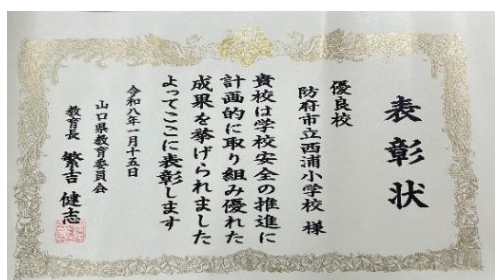 表彰状
優良校
防府市立西浦小学校 様
貴校は学校安全の推進に
計画的に取り組み優れた
成果を挙げられました
よってここに表彰します
令和八年一月十五日
山口県教育委員会
教育長 繁吉 健志